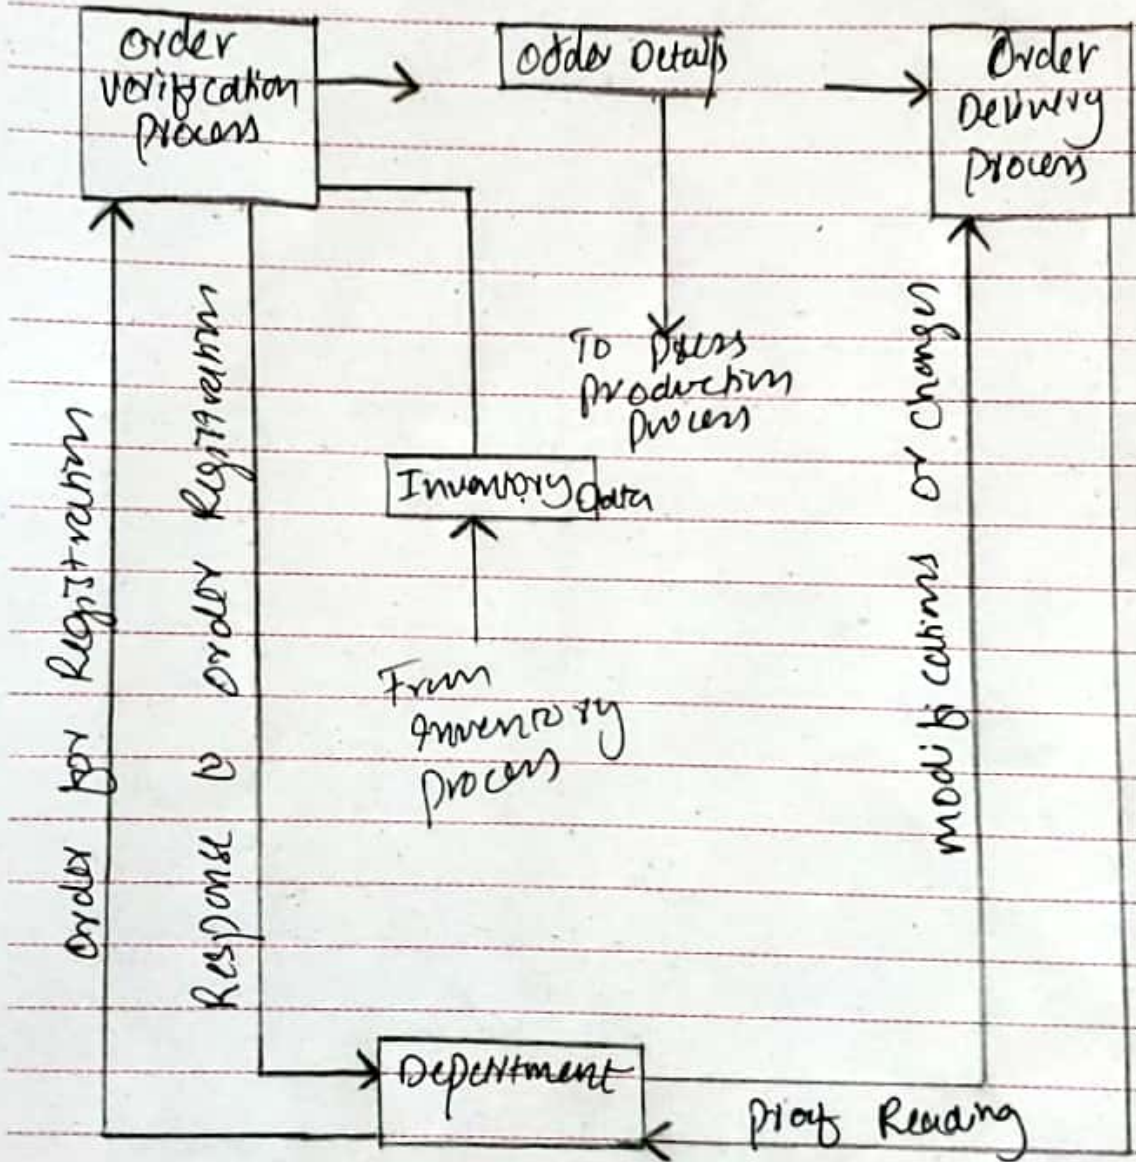 Order
Verification
process
Order Details
Order
Delivery
process
To press
production
process
Inventory Data
From
Inventory
process
Order for Registration
Response to order Registration
modifications or changes
Department
Proof Reading